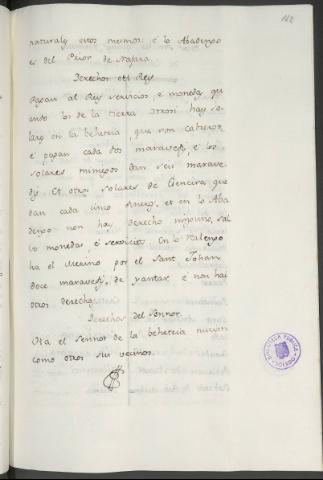 112
naturales estos mesmos: é lo Abadengo
es del Prior de Najara.
Derechos del Rey
Pagan al Rey servicios é moneda, qu
ando los de la tierra otrosi hay so-
lares en la behetria, que son
é pagan cada dos maravedis, é los
solares dan seis marave-
dis. Et otros solares de que
dan cada cinco et en lo Aba
dengo non hay derecho ninguno, sal
vo monedas é servicios. En lo Realengo
ha el Merino por el Sant Johan
doce maravedis, de yantar, é non hai
otros derechos.
Derechos del Sennor.
Ha el Sennor de la behetria
como otros sus vecinos.
BIBLIOTECA PUBLICA